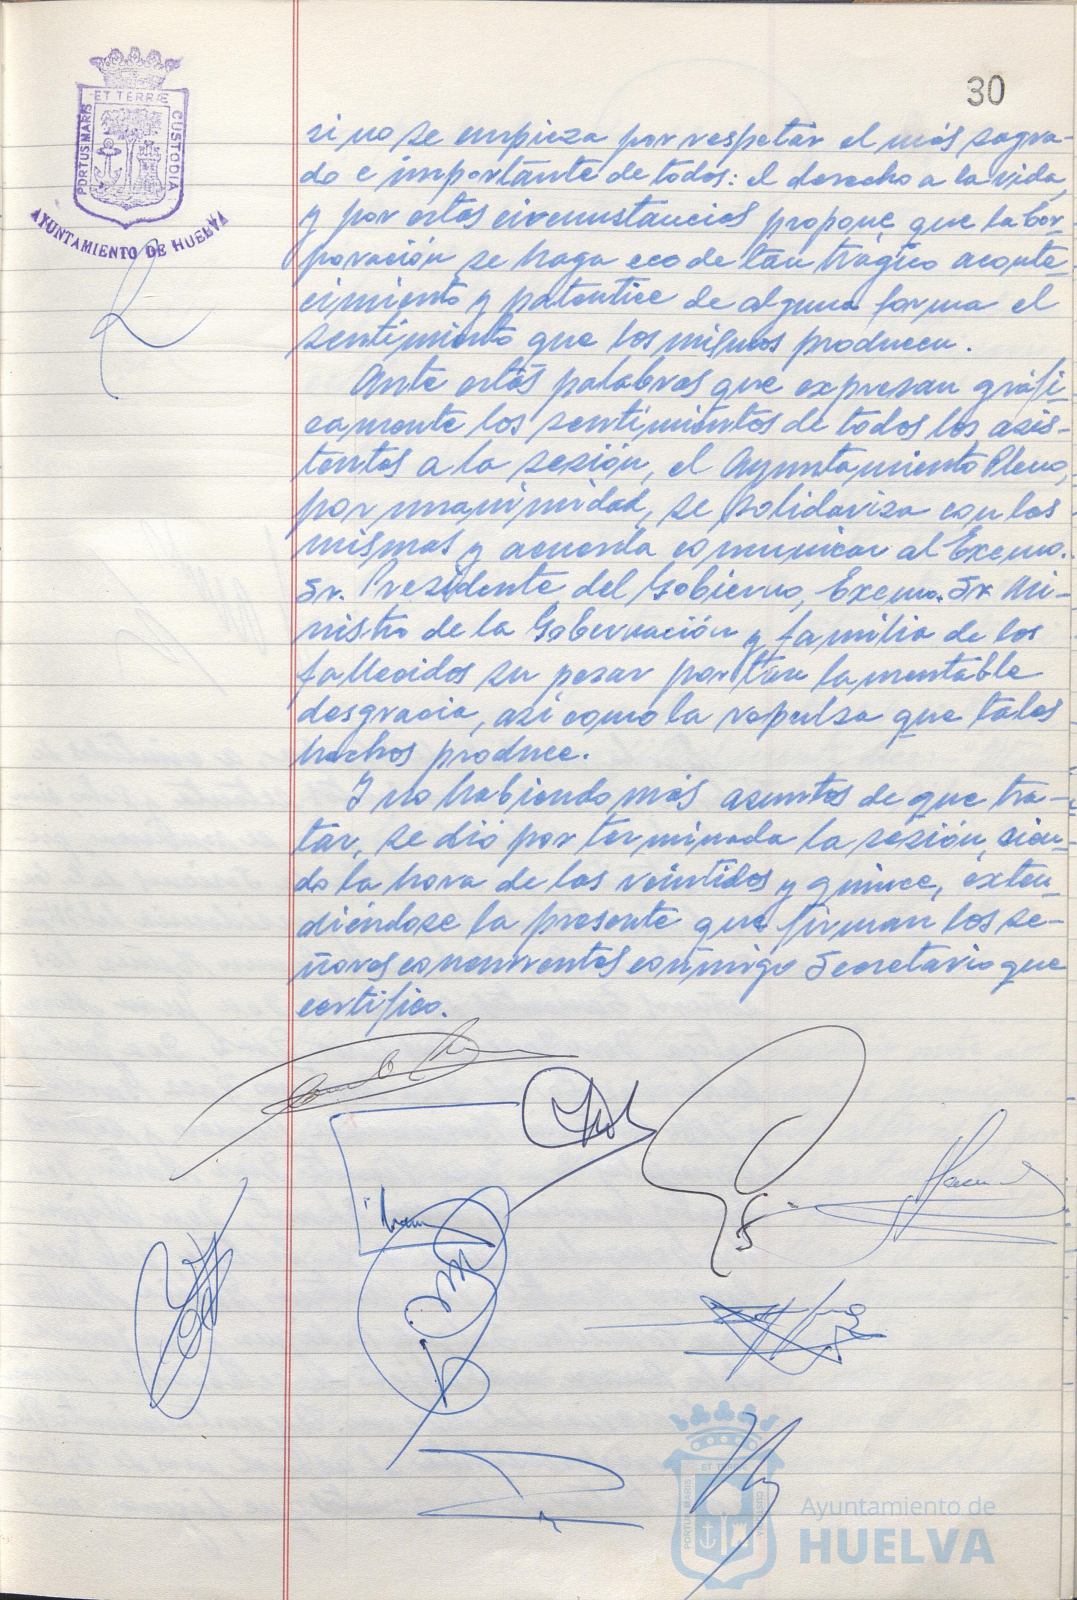 PORTUS MARIS
ET TERRÆ
CUSTODIA
AYUNTAMIENTO DE HUELVA
30
si no se empieza por respetar el más sagra-
do e importante de todos: el derecho a la vida,
y por estas circunstancias propone que la Cor-
poración se haga eco de tan trágico aconte-
cimiento y patentice de alguna forma el
sentimiento que los mismos producen.
Ante estas palabras que expresan gráfi-
camente los sentimientos de todos los asis-
tentes a la sesión, el Ayuntamiento Pleno,
por unanimidad, se solidariza con las
mismas y acuerda comunicar al Excmo.
Sr. Presidente del Gobierno, Excmo. Sr. Mi-
nistro de la Gobernación y familia de los
fallecidos su pesar por tan lamentable
desgracia, así como la repulsa que tales
hechos produce.
Y no habiendo más asuntos de que tra-
tar, se dió por terminada la sesión, sien-
do la hora de las veintidos y quince, exten-
diéndose la presente que firman los se-
ñores concurrentes conmigo Secretario que
certifico.
PORTUS MARIS
ET TERRÆ
CUSTODIA
Ayuntamiento de
HUELVA